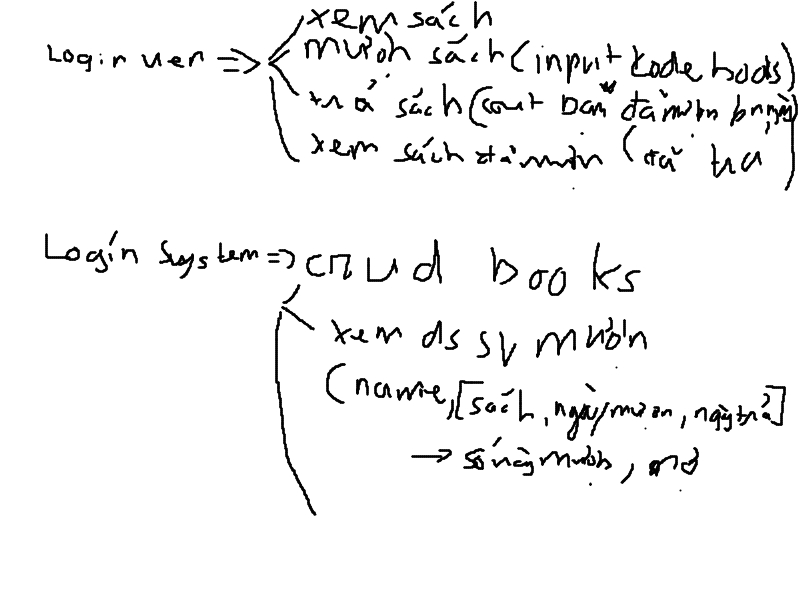 xem sách
Login user => mượn sách (input kode books)
trả sách (cout bạn đã mượn bn ngày)
xem sách đã mượn (đã trả
Login System => crud books
xem ds sv mượn
(name, [sách, ngày mượn, ngày trả]
→ số ngày mượn,